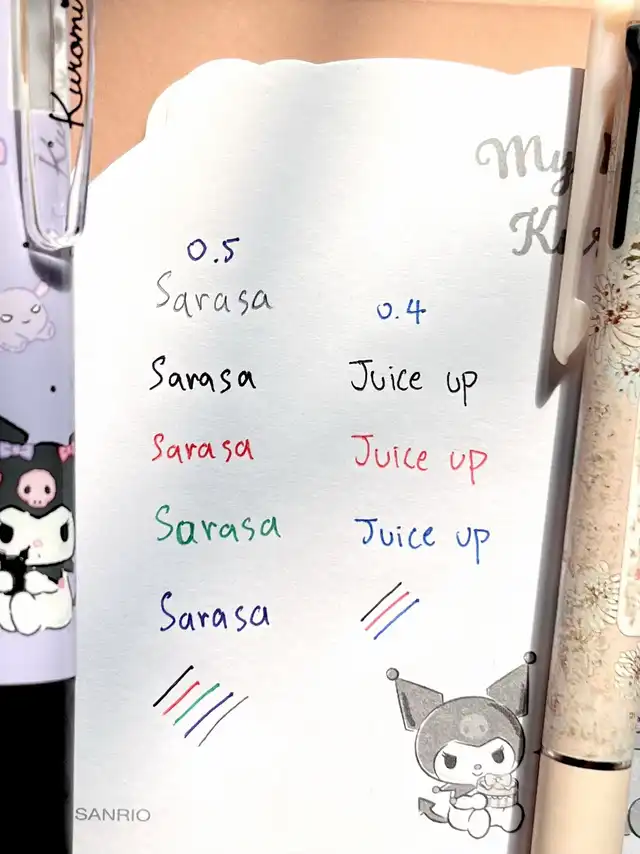 Kuromi
My
0.5
Sarasa
0.4
Sarasa
Juice up
Sarasa
Juice up
Sarasa
Juice up
Sarasa
SANRIO